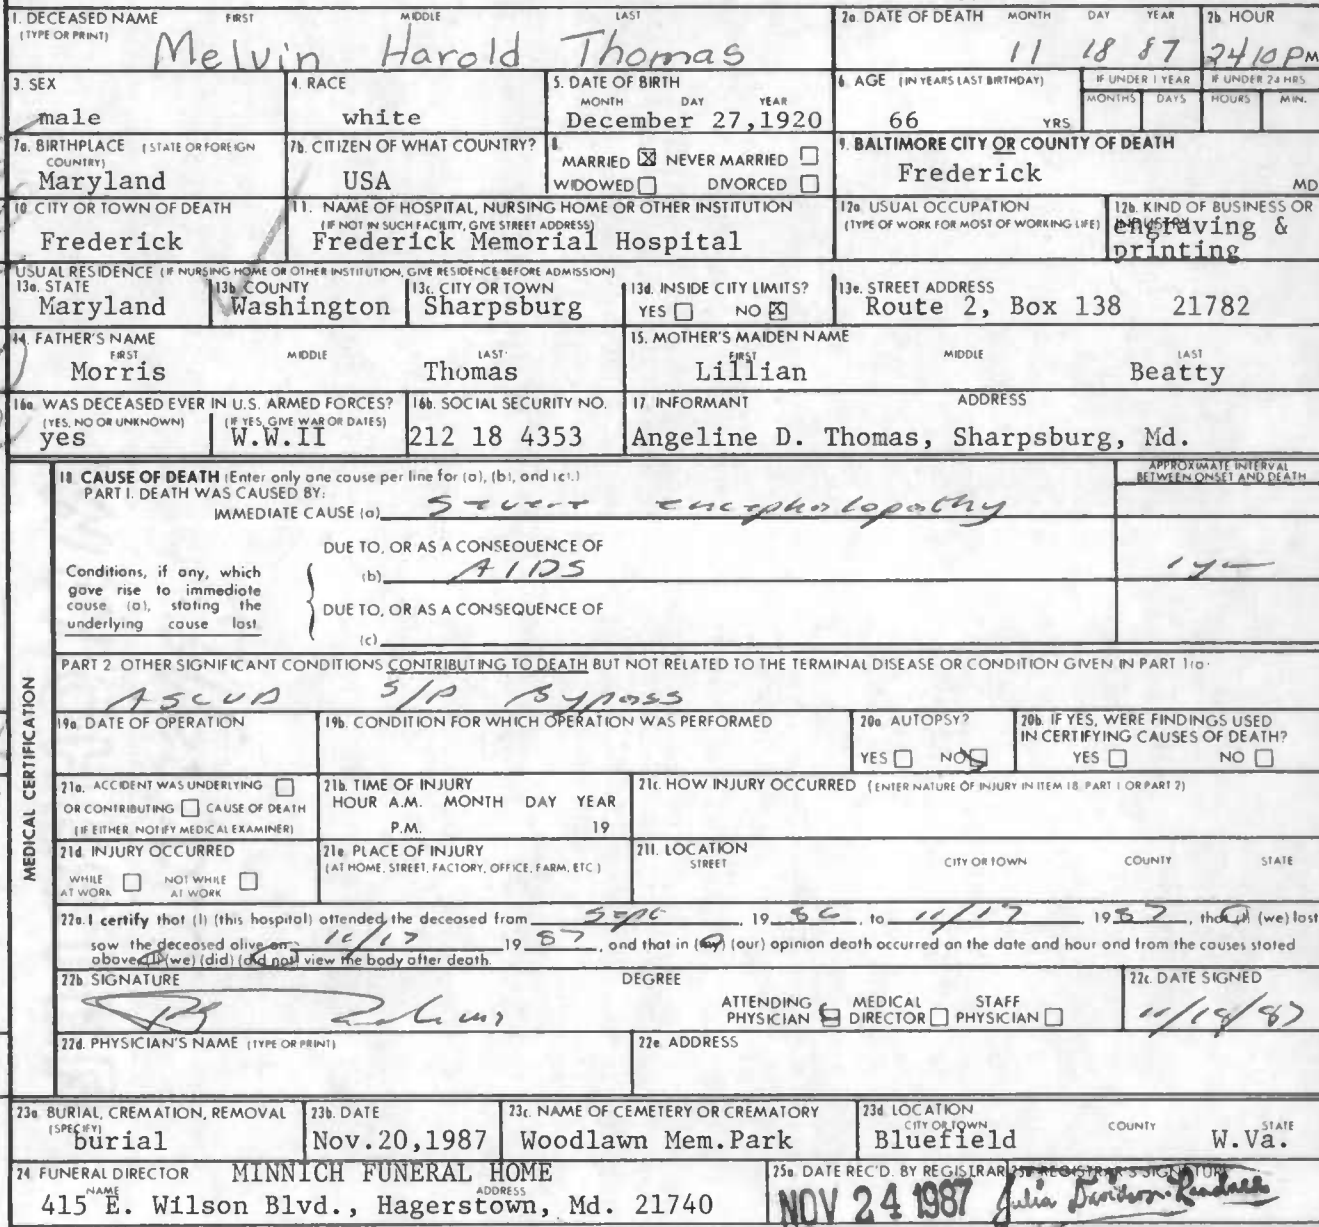 1. DECEASED NAME FIRST MIDDLE LAST
(TYPE OR PRINT)
Melvin Harold Thomas
2a. DATE OF DEATH MONTH DAY YEAR
11 18 87
2b. HOUR
2410 PM
3. SEX
male
4. RACE
white
5. DATE OF BIRTH
MONTH DAY YEAR
December 27,1920
6. AGE (IN YEARS LAST BIRTHDAY)
66 YRS
IF UNDER 1 YEAR
MONTHS DAYS
IF UNDER 24 HRS
HOURS MIN.
7a. BIRTHPLACE (STATE OR FOREIGN
COUNTRY)
Maryland
7b. CITIZEN OF WHAT COUNTRY?
USA
8.
MARRIED ☒ NEVER MARRIED ☐
WIDOWED ☐ DIVORCED ☐
9. BALTIMORE CITY OR COUNTY OF DEATH
Frederick
MD
10 CITY OR TOWN OF DEATH
Frederick
11. NAME OF HOSPITAL, NURSING HOME OR OTHER INSTITUTION
(IF NOT IN SUCH FACILITY, GIVE STREET ADDRESS)
Frederick Memorial Hospital
12a. USUAL OCCUPATION
(TYPE OF WORK FOR MOST OF WORKING LIFE)
12b. KIND OF BUSINESS OR
INDUSTRY
engraving &
printing
USUAL RESIDENCE (IF NURSING HOME OR OTHER INSTITUTION, GIVE RESIDENCE BEFORE ADMISSION)
13a. STATE
Maryland
13b. COUNTY
Washington
13c. CITY OR TOWN
Sharpsburg
13d. INSIDE CITY LIMITS?
YES ☐ NO ☒
13e. STREET ADDRESS
Route 2, Box 138 21782
14. FATHER'S NAME
FIRST MIDDLE LAST
Morris Thomas
15. MOTHER'S MAIDEN NAME
FIRST MIDDLE LAST
Lillian Beatty
16a. WAS DECEASED EVER IN U.S. ARMED FORCES?
(YES, NO OR UNKNOWN) (IF YES, GIVE WAR OR DATES)
yes W.W.II
16b. SOCIAL SECURITY NO.
212 18 4353
17. INFORMANT ADDRESS
Angeline D. Thomas, Sharpsburg, Md.
MEDICAL CERTIFICATION
18 CAUSE OF DEATH (Enter only one cause per line for (a), (b), and (c).)
APPROXIMATE INTERVAL
BETWEEN ONSET AND DEATH
PART I. DEATH WAS CAUSED BY:
IMMEDIATE CAUSE (a) Severe encephalopathy
DUE TO, OR AS A CONSEQUENCE OF
Conditions, if any, which
gave rise to immediate
cause (a), stating the
underlying cause last
(b) AIDS 1 yr
DUE TO, OR AS A CONSEQUENCE OF
(c)
PART 2 OTHER SIGNIFICANT CONDITIONS CONTRIBUTING TO DEATH BUT NOT RELATED TO THE TERMINAL DISEASE OR CONDITION GIVEN IN PART 1(a)
ASCVD S/P Bypass
19a. DATE OF OPERATION
19b. CONDITION FOR WHICH OPERATION WAS PERFORMED
20a AUTOPSY?
YES ☐ NO ☒
20b. IF YES, WERE FINDINGS USED
IN CERTIFYING CAUSES OF DEATH?
YES ☐ NO ☐
21a. ACCIDENT WAS UNDERLYING ☐
OR CONTRIBUTING ☐ CAUSE OF DEATH
(IF EITHER NOTIFY MEDICAL EXAMINER)
21b. TIME OF INJURY
HOUR A.M. MONTH DAY YEAR
P.M. 19
21c. HOW INJURY OCCURRED (ENTER NATURE OF INJURY IN ITEM 18, PART 1 OR PART 2)
21d INJURY OCCURRED
WHILE AT WORK ☐ NOT WHILE AT WORK ☐
21e PLACE OF INJURY
(AT HOME, STREET, FACTORY, OFFICE, FARM, ETC.)
21f. LOCATION
STREET CITY OR TOWN COUNTY STATE
22a. I certify that (I) (this hospital) attended the deceased from Sept 1986, to 11/17 1987, that (I) (we) last
saw the deceased alive on 11/17 1987, and that in (my) (our) opinion death occurred on the date and hour and from the causes stated
above (I) (we) (did) (did not) view the body after death.
22b. SIGNATURE DEGREE
ATTENDING PHYSICIAN ☒ MEDICAL DIRECTOR ☐ STAFF PHYSICIAN ☐
22c. DATE SIGNED
11/18/87
22d. PHYSICIAN'S NAME (TYPE OR PRINT)
22e. ADDRESS
23a BURIAL, CREMATION, REMOVAL
(SPECIFY)
burial
23b. DATE
Nov.20,1987
23c. NAME OF CEMETERY OR CREMATORY
Woodlawn Mem.Park
23d LOCATION
CITY OR TOWN COUNTY STATE
Bluefield W.Va.
24 FUNERAL DIRECTOR MINNICH FUNERAL HOME
NAME ADDRESS
415 E. Wilson Blvd., Hagerstown, Md. 21740
25a. DATE REC'D. BY REGISTRAR
NOV 24 1987
25b REGISTRAR'S SIGNATURE
Julia Davidson-Randall